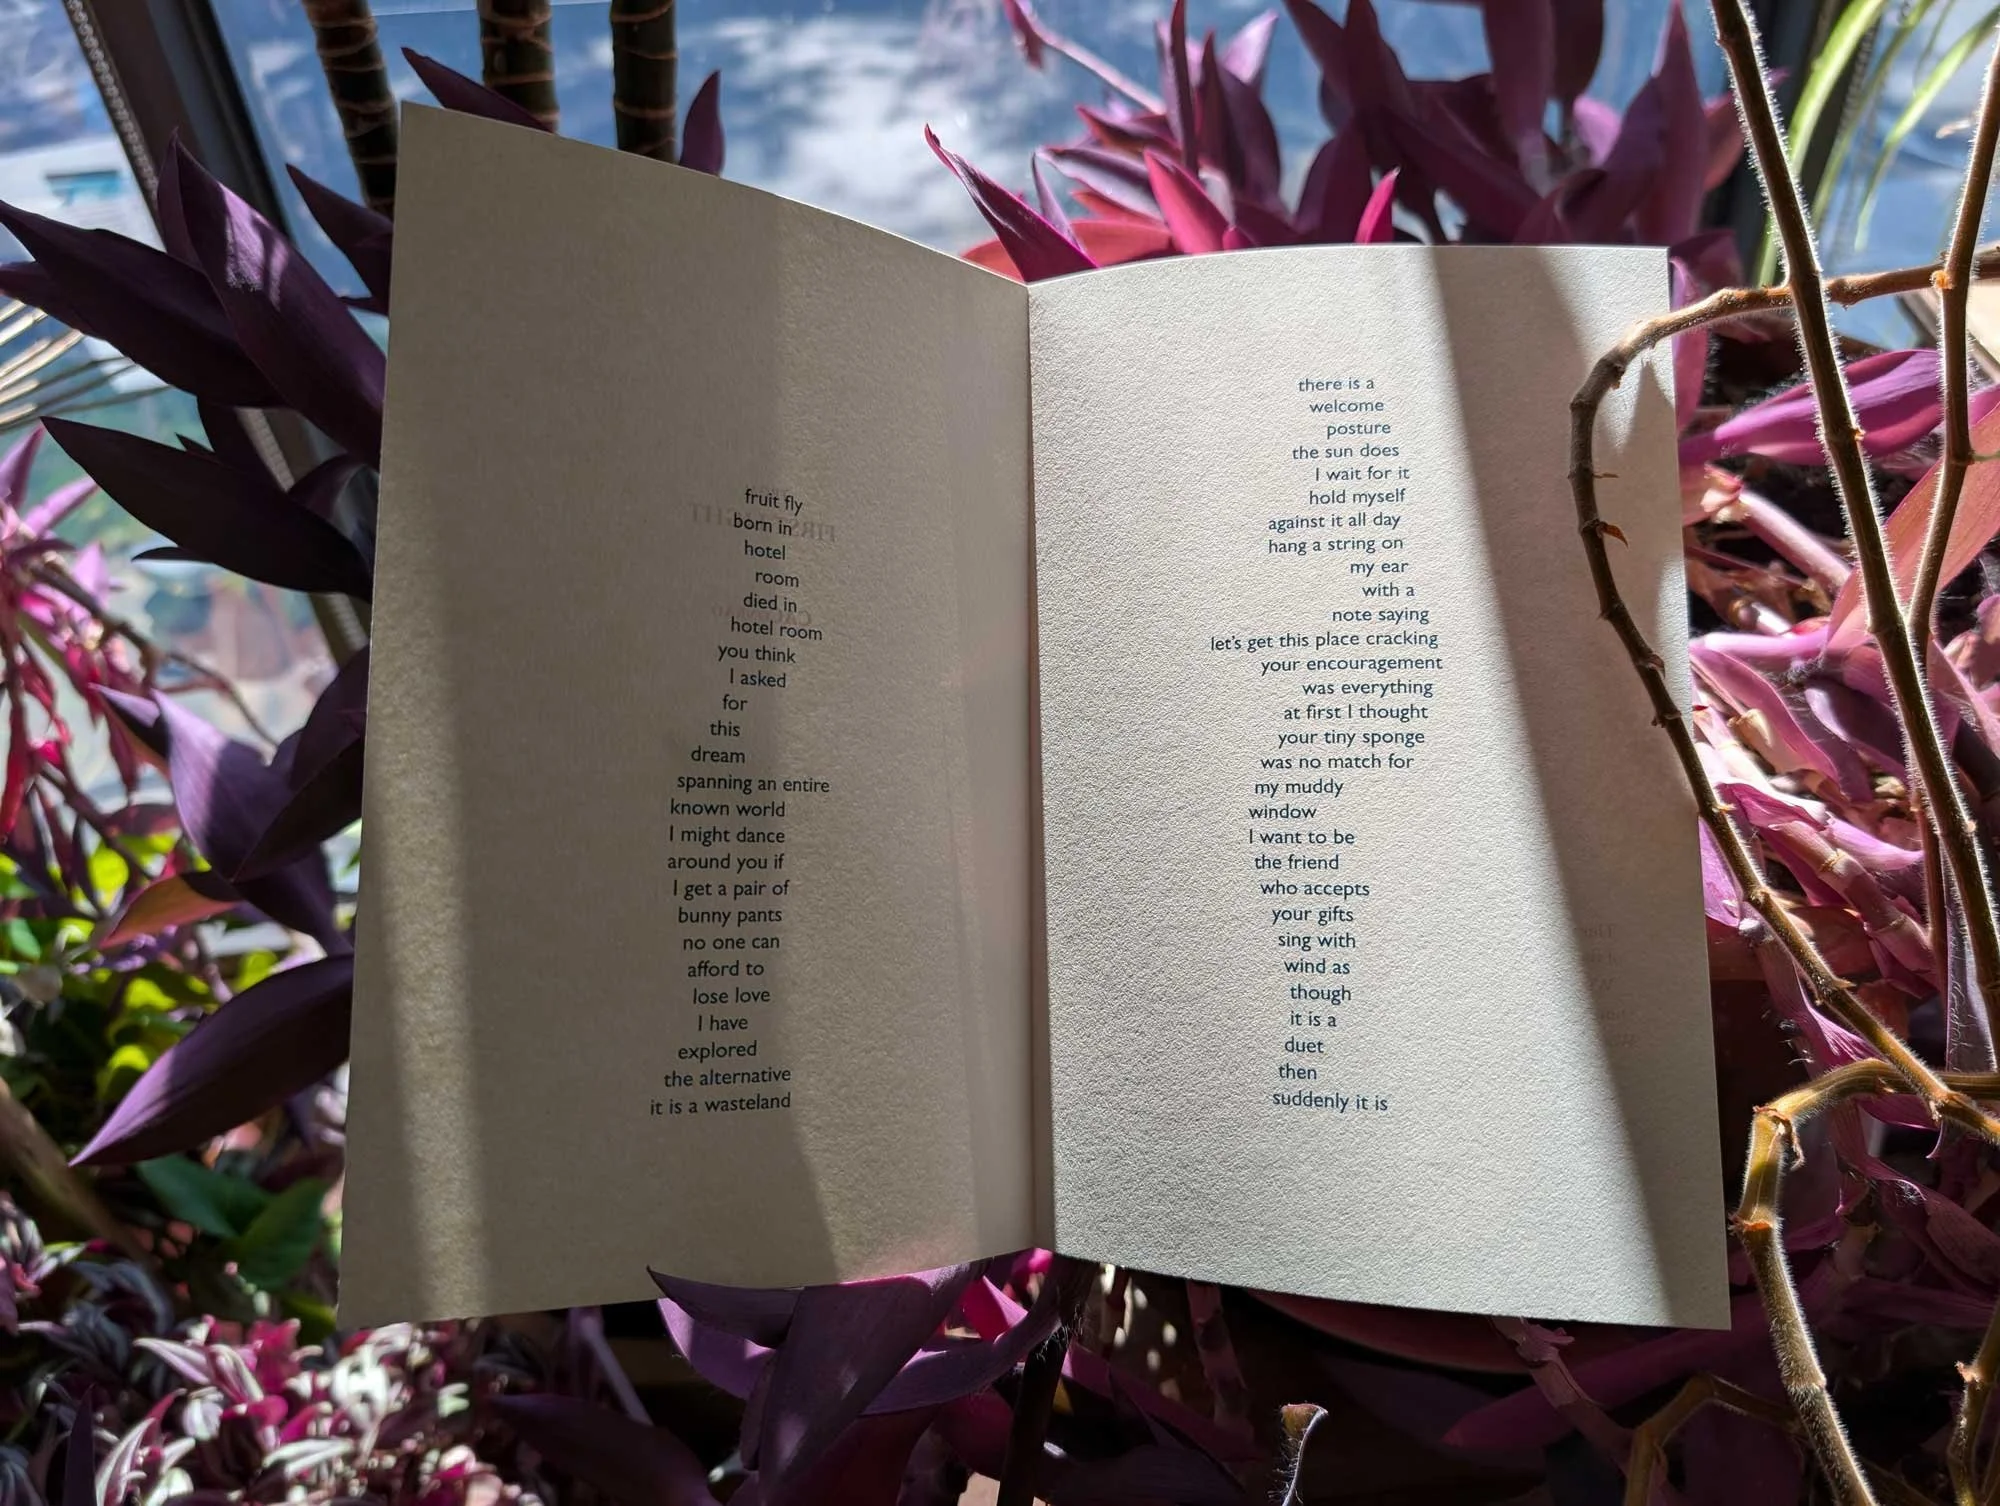 fruit fly
born in
hotel
room
died in
hotel room
you think
I asked
for
this
dream
spanning an entire
known world
I might dance
around you if
I get a pair of
bunny pants
no one can
afford to
lose love
I have
explored
the alternative
it is a wasteland
there is a
welcome
posture
the sun does
I wait for it
hold myself
against it all day
hang a string on
my ear
with a
note saying
let's get this place cracking
your encouragement
was everything
at first I thought
your tiny sponge
was no match for
my muddy
window
I want to be
the friend
who accepts
your gifts
sing with
wind as
though
it is a
duet
then
suddenly it is